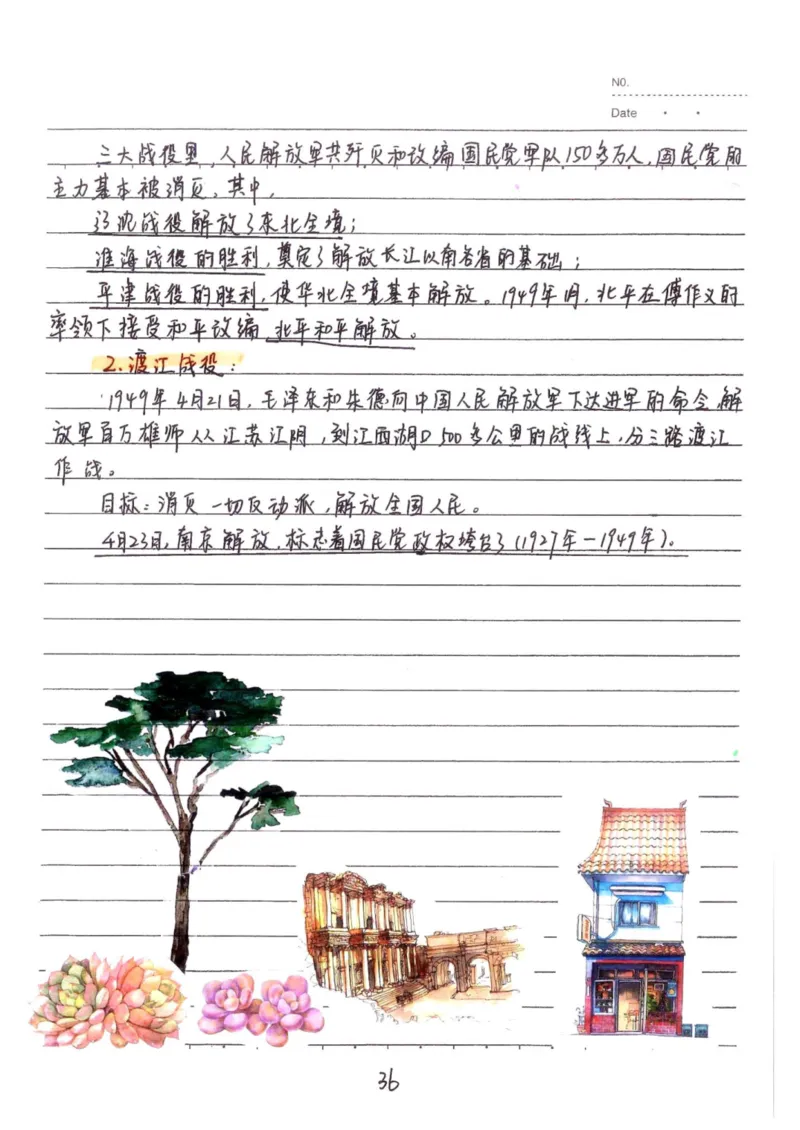 NO.
Date · ·
三大战役里,人民解放军共歼灭和改编国民党军队150多万人,国民党的
主力基本被消灭。其中,
辽沈战役解放了东北全境;
淮海战役的胜利,奠定了解放长江以南各省的基础;
平津战役的胜利,使华北全境基本解放。1949年1月,北平在傅作义的
率领下接受和平改编,北平和平解放。
2.渡江战役:
·1949年4月21日,毛泽东和朱德向中国人民解放军下达进军的命令,解
放军百万雄师从江苏江阴,到江西湖口500多公里的战线上,分三路渡江
作战。
目标:消灭一切反动派,解放全国人民。
4月23日,南京解放,标志着国民党政权垮台了(1927年-1949年)。
36